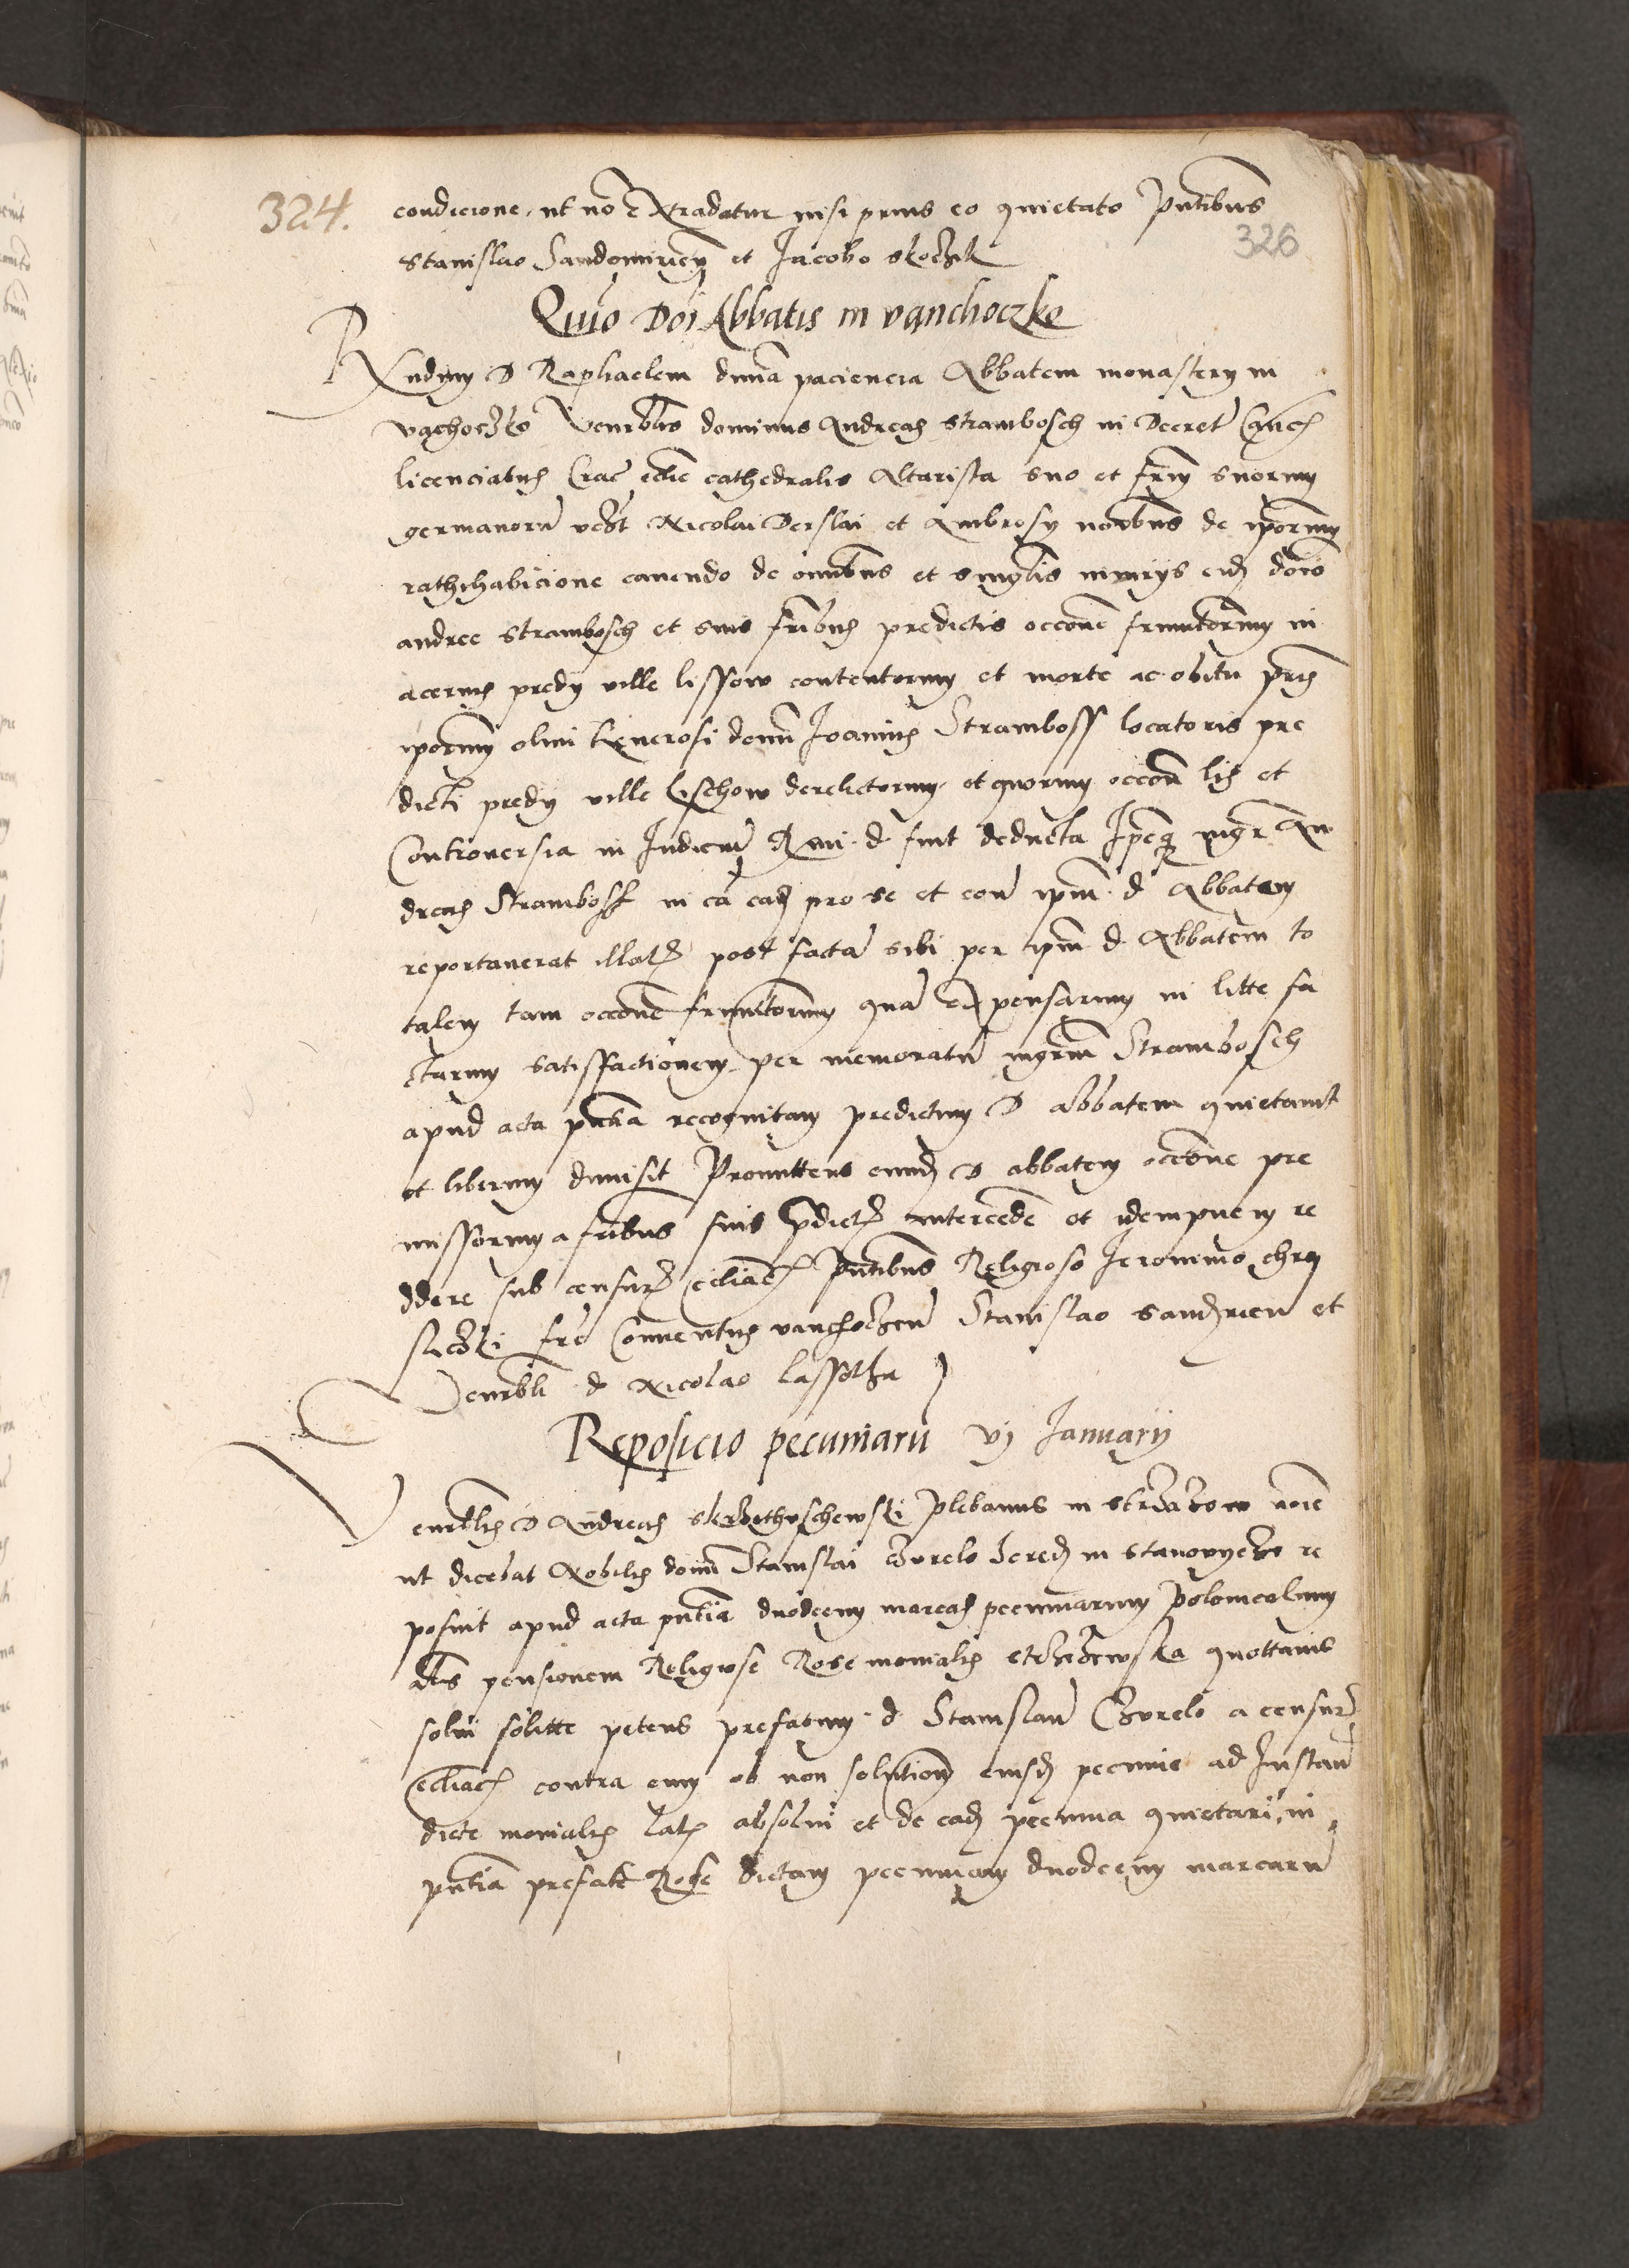 324.
326
condicione, ut no extradatur nisi prius eo quietato pntibus
Stanislao Sandomirien et Jacobo
Quio Doi Abbatis in vanchoczko
Rxndum D Raphaelem diuina paciencia Abbatem monastery in
vachoczko Venerbilis dominus Andreas Strambosch in Decret Canc
licenciatus Crac eclie cathedralis Altarista suo et frm suorum
germanoru vczt Nicolai Derslai et Ambrosy noibus de iporum
rathihabicione cauendo de omnibus et singlis iniurijs eid dno
andree Strambosch et suis fribus predictis occone frumtorum in
aceruis predy ville lissow contentorum et morte ac obitu pris
iporum olim Generosi domi Joannis Stramboss locatoris pre
dicti predij ville lyschow derelictorum, et quorum occon lis et
Controuersia in Judiciu Rmi d fuit deducta Ipeq mgr An
dreas Stramboss in ca ead pro se et con ipm d Abbatem
reportauerat illat post facta sibi per ipm d Abbatem to
talem tam occone frumtorum qua expensarum in litte fa
ctarum satisfactionem per memoratu mgrm Strambosch
apud acta pntia recognitam predictum D abbatem quietauit
et liberum dimisit Promittens eund D abbatem occone pre
missorum a fribus suis pdict intercede et idempnem re
ddere sub censur eccliac pntibus Religioso Jeronimo
fre Conuentus vanchoczen Stanislao sandrien et
Venerbli d Nicolao lassotha
Reposicio pecuniaru vj Januarij
Venerblis D Andreas plebanus in noie
ut dicebat Nobilis domi Stanislai Czurelo hered in re
posuit apud acta pntia duodecim marcas pecuniarum Polonicalium
pensionem Religiose Rose monialis quottanis
solui solitte petens prefatum d Stanislau Czurelo a censur
ecliac contra eum ob non solution eiusd pecunie ad Instan
dicte monialis lat absolui et de ead pecunia quietari, in
pntia prefate Rose dictam pecuniam duodecim marcaru